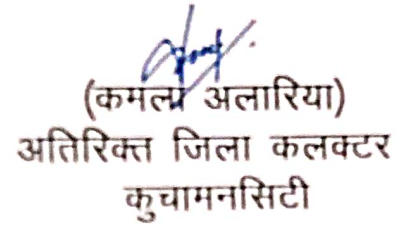 (कमला अलारिया)
अतिरिक्त जिला कलक्टर
कुचामनसिटी